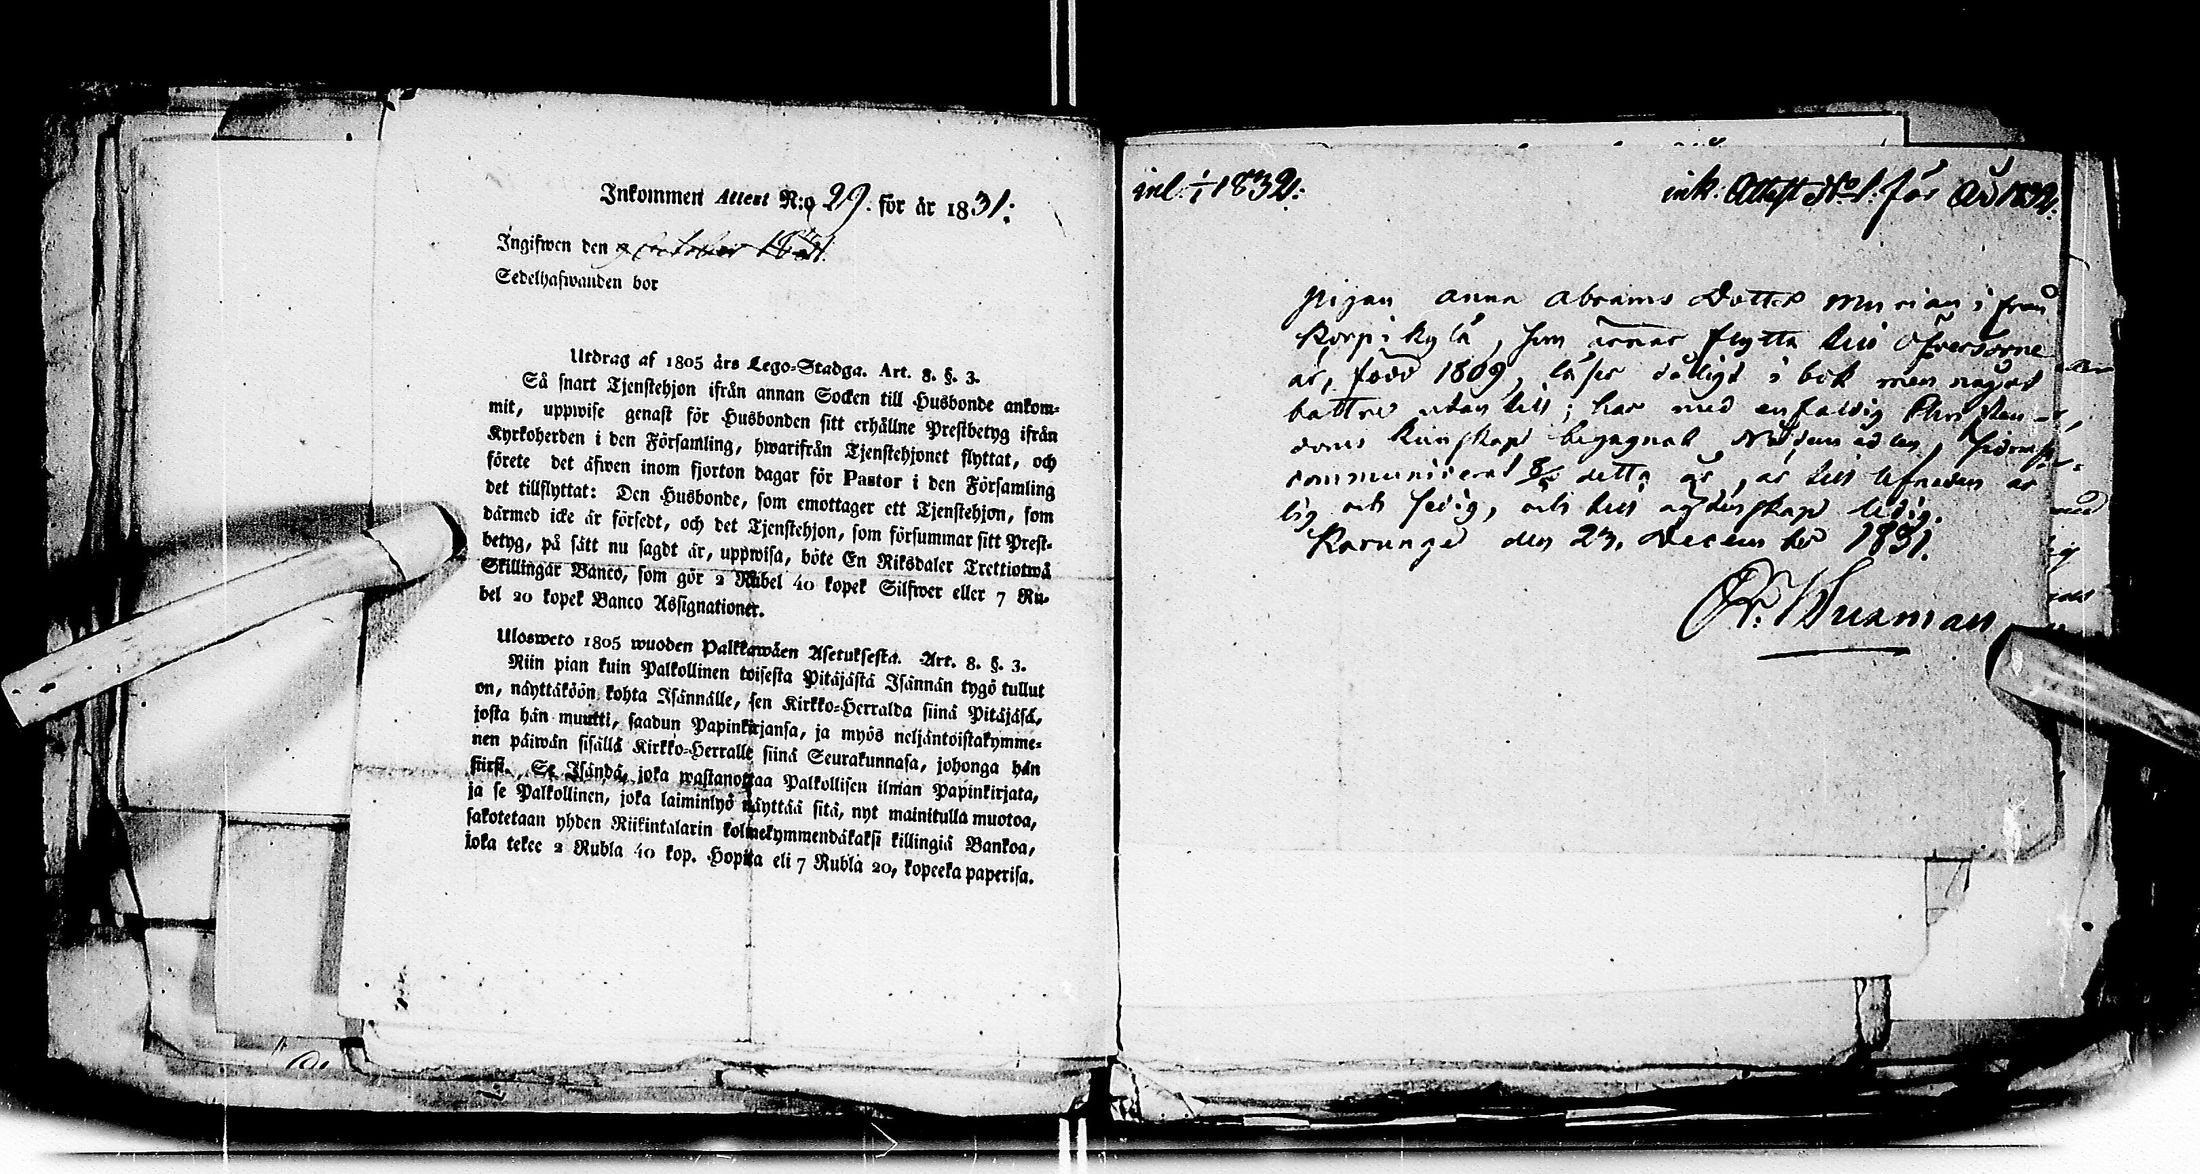 Inkommen Attest N:o 29. för år 1831.
Ingifwen den 9 october 1831.
Sedelhafwanden bor
Utdrag af 1805 års Lego-Stadga. Art. 8. §. 3.
Så snart Tjenstehjon ifrån annan Socken till Husbonde ankom-
mit, uppwise genast för Husbonden sitt erhållne Prestbetyg ifrån
Kyrkoherden i den Församling, hwarifrån Tjenstehjonet flyttat, och
förete det äfwen inom fjorton dagar för Pastor i den Församling
det tillflyttat: Den Husbonde, som emottager ett Tjenstehjon, som
därmed icke är försedt, och det Tjenstehjon, som försummar sitt Prest-
betyg, på sätt nu sagdt är, uppwisa, böte En Riksdaler Trettiotwå
Skillingar Banco, som gör 2 Rubel 40 kopek Silfwer eller 7 Ru-
bel 20 kopek Banco Assignationer.
Ulosweto 1805 wuoden Palkkawäen Asetuksesta. Art. 8. §. 3.
Niin pian kuin Palkollinen toisesta Pitäjästä Isännän tygö tullut
on, näyttäköön kohta Isännälle, sen Kirkko-Herralda siinä Pitäjäsä,
josta hän muutti, saadun Papinkirjansa, ja myös neljäntoistakymme-
nen päiwän sisällä Kirkko-Herralle siinä Seurakunnasa, johonga hän
siirsi. Se Isändä, joka wastanottaa Palkollisen ilman Papinkirjata,
ja se Palkollinen, joka laiminlyö näyttää sitä, nyt mainitulla muotoa,
sakotetaan yhden Riikintalarin kolmekymmendäkaksi killingiä Bankoa,
joka tekee 2 Rubla 40 kop. Hopita eli 7 Rubla 20, kopeeka paperisa.
inl. 1/1 1832.
ink. Attest No 1. för År 1832.
Pigan Anna Abrams Dotter ifrån
Korpikylä, som ärnar flytta till Öfvertorne
är, född 1809, läser dåligt i bok men något
battre utan till; har med enfaldig Christen-
doms kunskap begagnat Nattvarden,
communicerat detta år, är till lefnaden är
lig och sedig, och till agtenskap ledig.
Karungi den 23. December 1831.